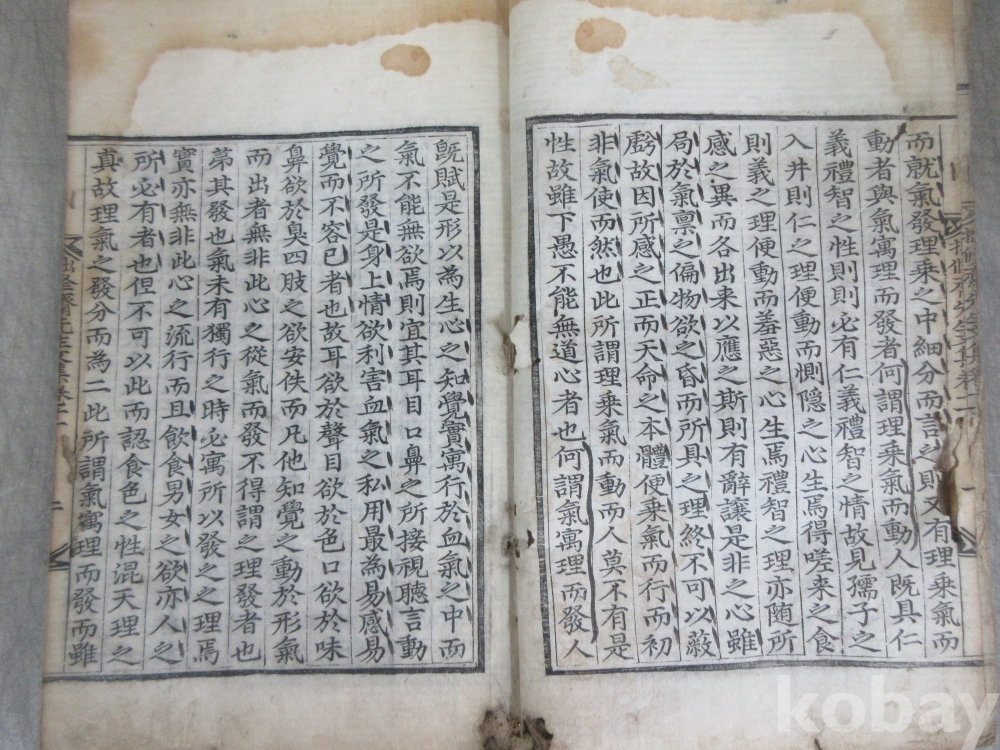 而就氣發理乘之中細分而言之則又有理乘氣而
動者與氣寓理而發者何謂理乘氣而動人既具仁
義禮智之性則則必有仁義禮智之情故見孺子之
入井則仁之理便動而惻隱之心生焉得嗟来之食
則義之理便動而羞惡之心生焉禮智之理亦隨所
感之異而各出来以應之斯則有辭讓是非之心雖
局於氣禀之偏物欲之昏而所具之理終不可以蔽
虧故因所感之正而天命之本體便乗氣而行而初
非氣使而然也此所謂理乘氣而動而人莫不有是
性故雖下愚不能無道心者也何謂氣寓理而發人
旣賦是形以為生心之知覺實寓行於血氣之中而
氣不能無欲焉則宜其耳目口鼻之所接視聽言動
之所發是身上情欲利害血氣之私用最為易感易
覺而不容已者也故耳欲於聲目欲於色口欲於味
鼻欲於臭四肢之欲安佚而凡他知覺之動於形氣
而出者無非此心之從氣而發不得謂之理發者也
苐其發也氣未有獨行之時必寓所以發之之理焉
實亦無非此心之流行而且飲食男女之欲亦人之
所必有者也但不可以此而認食色之性混天理之
真故理氣之發分而為二此所謂氣寓理而發而雖
kobay